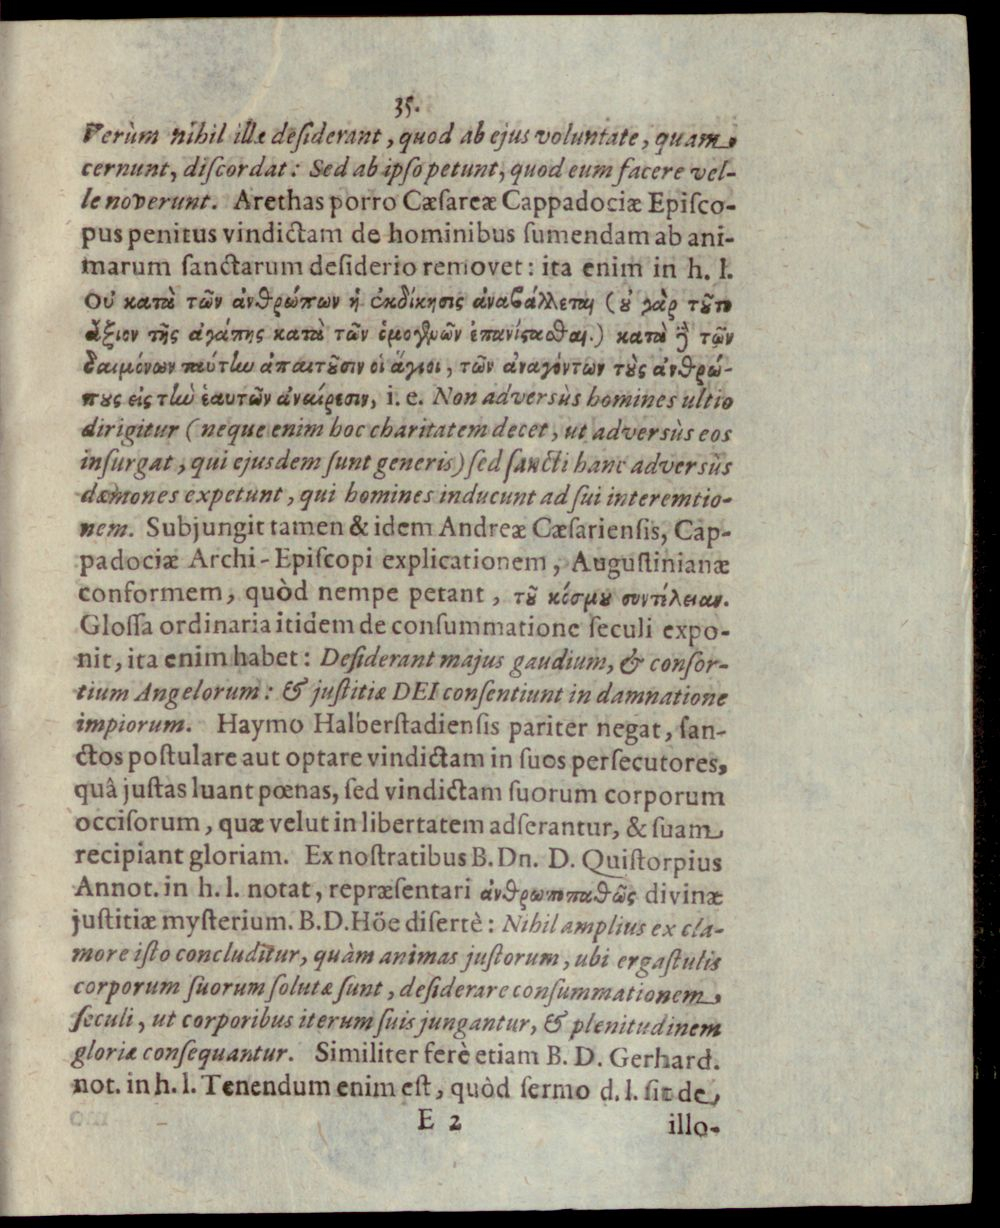 35.
Verùm nihil illæ deſiderant, quod ab ejus voluntate, quam
cernunt, diſcordat: Sed ab ipſo petunt, quod eum facere vel-
le noverunt. Arethas porro Cæſareæ Cappadociæ Epiſco-
pus penitus vindictam de hominibus ſumendam ab ani-
marum ſanctarum deſiderio removet: ita enim in h. l.
Οὐ κατὰ τῶν ἀνθρώπων ἡ ἐκδίκησις ἀναβάλλεται (ȣ̓ γὰρ τȣ͂το
ἄξιον τῆς ἀγάπης κατὰ τῶν ὁμογενῶν ἐπανίστασθαι.) κατὰ δὲ τῶν
δαιμόνων ταύτην ἀπαιτȣ͂σιν οἱ ἅγιοι, τῶν ἀναγόντων τȣ̀ς ἀνθρώ-
πȣς εἰς τὴν ἑαυτῶν ἀναίρεσιν, i. e. Non adversùs homines ultio
dirigitur (neque enim hoc charitatem decet, ut adversùs eos
inſurgat, qui ejusdem ſunt generis) ſed ſancti hanc adversùs
dæmones expetunt, qui homines inducunt ad ſui interemtio-
nem. Subjungit tamen & idem Andreæ Cæſarienſis, Cap-
padociæ Archi-Epiſcopi explicationem, Auguſtinianæ
conformem, quòd nempe petant, τȣ͂ κόσμȣ συντέλειαν.
Gloſſa ordinaria itidem de conſummatione ſeculi expo-
nit, ita enim habet: Deſiderant majus gaudium, & conſor-
tium Angelorum: & juſtitiæ DEI conſentiunt in damnatione
impiorum. Haymo Halberſtadienſis pariter negat, ſan-
ctos poſtulare aut optare vindictam in ſuos perſecutores,
quâ juſtas luant pœnas, ſed vindictam ſuorum corporum
occiſorum, quæ velut in libertatem adſerantur, & ſuam
recipiant gloriam. Ex noſtratibus B. Dn. D. Quiſtorpius
Annot. in h. l. notat, repræſentari ἀνθρωποπαθῶς divinæ
juſtitiæ myſterium. B. D. Höe diſertè: Nihil amplius ex cla-
more iſto concluditur, quàm animas juſtorum, ubi ergaſtulis
corporum ſuorum ſolutæ ſunt, deſiderare conſummationem
ſeculi, ut corporibus iterum ſuis jungantur, & plenitudinem
gloriæ conſequantur. Similiter ferè etiam B. D. Gerhard.
not. in h. l. Tenendum enim eſt, quòd ſermo d. l. ſit de
E 2
illo-